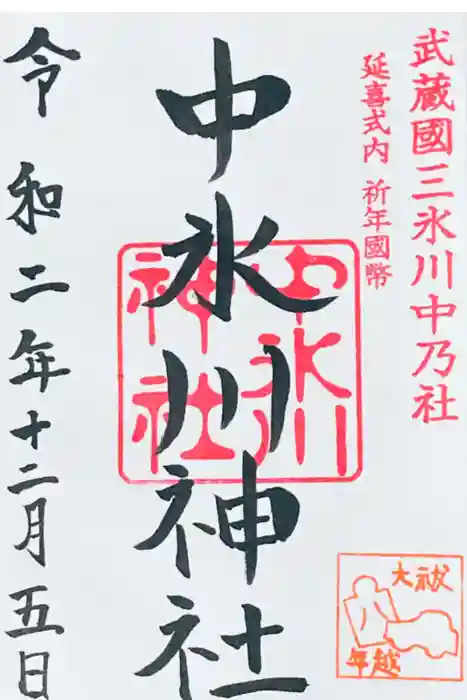 武蔵國三氷川中乃社
延喜式内 祈年國幣
中氷川神社
中氷川
神社
令和二年十二月五日
大祓
年越